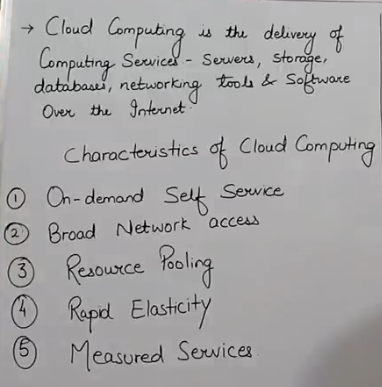 → Cloud Computing is the delivery of
Computing Services - Servers, Storage,
databases, networking tools & Software
Over the Internet.
Characteristics of Cloud Computing
① On-demand Self Service
② Broad Network access
③ Resource Pooling
④ Rapid Elasticity
⑤ Measured Services.